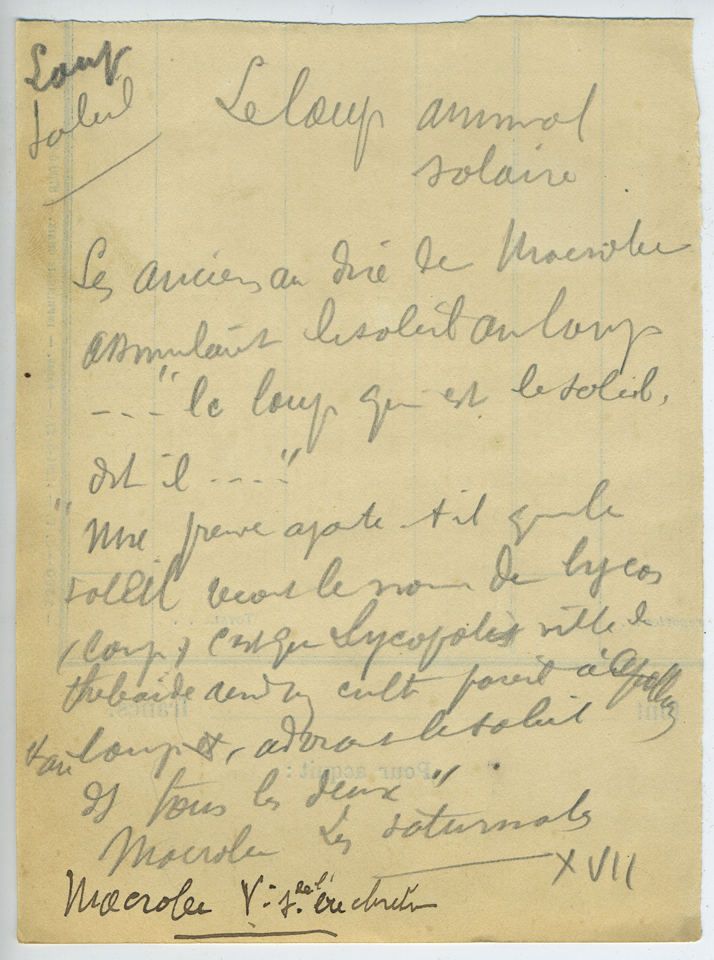 Loup
soleil
Le loup animal
solaire
Les anciens au dire de Macrobe
assimilaient le soleil au loup
---" le loup qui est le soleil,
dit il ----"
" Une preuve ajoute-t-il que le
soleil recoit le nom de lycos
(loup) c'est que Lycopolis ville de
thebaide rend un culte pareil à Apollon
et au loup, adorant le soleil
ds tous les deux "
Macrobe Les saturnales
XVII
Macrobe V: s. de l' ère chrétn
Pour acquit :
francs.